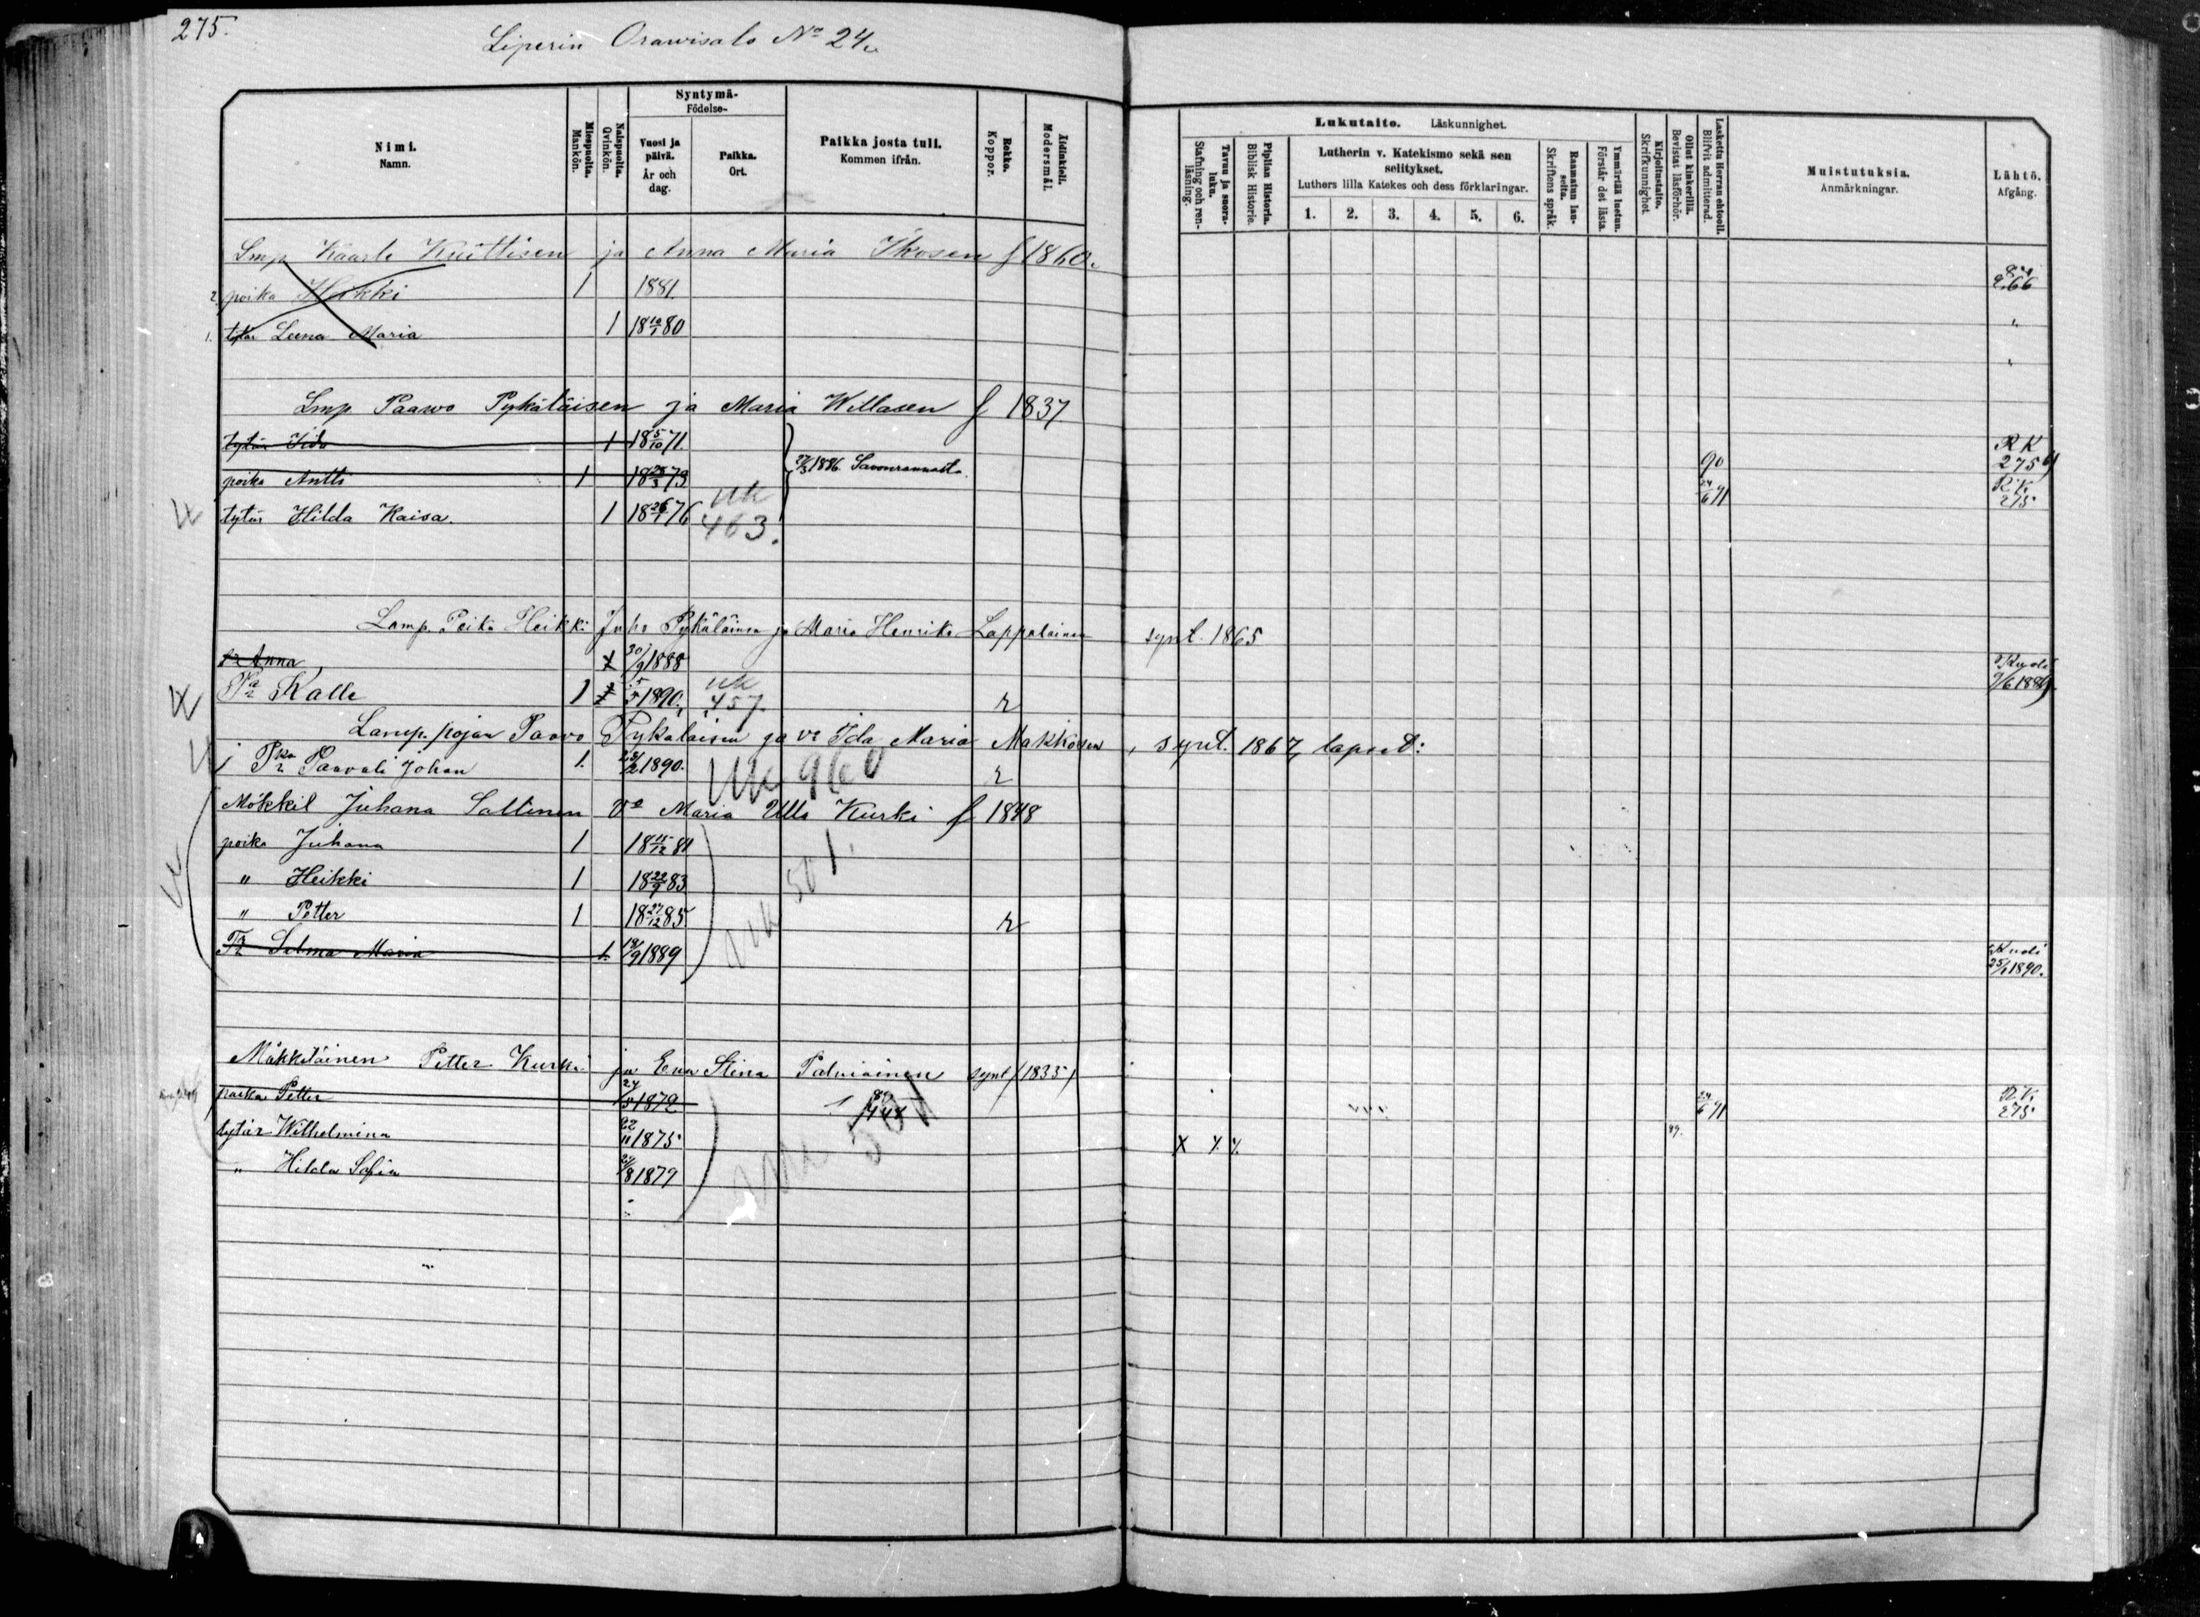 275.
Liperin Orawisalo No 24.
Syntymä-
Födelse-
Nimi.
Namn.
Miespuolia.
Mankön.
Naispuolia.
Qvinkön.
Vuosi ja päivä.
År och dag.
Paikka.
Ort.
Paikka josta tuli.
Kommen ifrån.
Rokko.
Koppor.
Äidinkieli.
Modersmål.
Lukutaito. Läskunnighet.
Tavuu ja suora-luku.
Stafning och ren-läsning.
Piplian Historia.
Biblisk Historie.
Lutherin v. Katekismo sekä sen selitykset.
Luthers lilla Katekes och dess förklaringar.
1. 2. 3. 4. 5. 6.
Raamatun lau-seita.
Skriftens språk.
Ymmärtää luetun.
Förstår det lästa.
Kirjoitustaito.
Skrifkunnighet
Ollut kinkerillä.
Bevistat läsförhör.
Laskettu Herran ehtooll.
Blifvit admitterad.
Muistutuksia.
Anmärkningar.
Lähtö.
Afgång.
Lmp Kaarle Kuittisen ja Anna Maria Ikosen f 1860.
2. poika Heikki 1 1881. 266
1. tytär Leena Maria 1 18 10/1 80 "
Lmp Paawo Pykäläisen ja Maria Willasen f 1837
tytär Ida 1 18 5/10 71. 90 RK 275
poika Antti 1 18 25/3 73 27/3 1886 Savonrannasta 24/6 91 R.K. 275
tytär Hilda Kaisa. 1 18 26/1 76 uk 463.
Lamp. Poika Heikki Juho Pykäläinen ja Maria Henrika Lappalainen synt. 1865
tr Anna 1 30/9 1888 Kuoli 9/6 1889.
Pa Kalle 1 1890. uk 457. r
Lamp. pojan Paavo Pykäläisen ja vo Ida Maria Makkosen, synt. 1867, lapset:
Pka Paavali Johan 1. 1890. uk 460 r
Mökkil Juhana Sallinen Vo Maria Ulla Kurki f 1848
poika Juhana 1 18 15/12 81
" Heikki 1 18 22/9 83 uk 501.
" Petter 1 18 27/12 85 r
Tr Selma Maria 1. 18/9 1889 Kuoli 25/1 1890.
Mäkkiläinen Petter Kurki ja Eva Stina Palviainen synt (1835)
poika Petter 24/5 1872 24/6 91 R.K. 275
tytär Wilhelmina 22/11 1875. 89. x x x
" Hilda Sofia 1879 uk 501